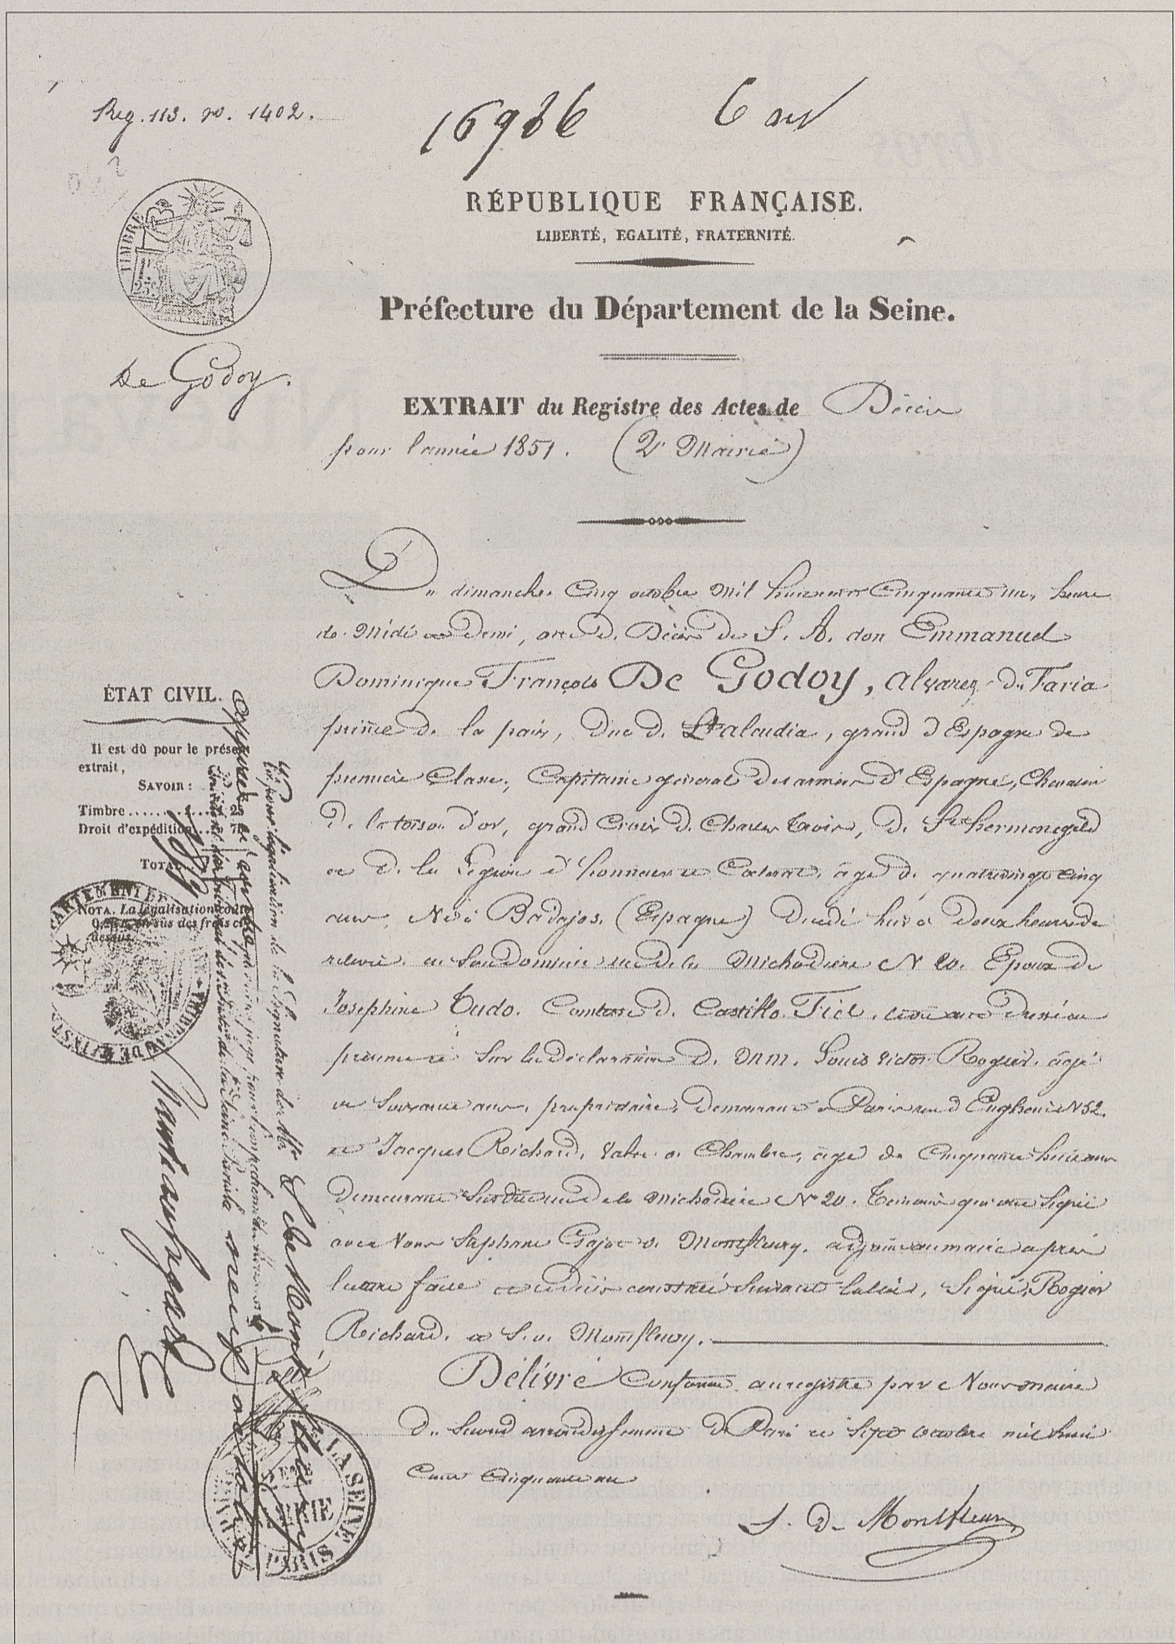 Reg. 113. no. 1402.
16986
RÉPUBLIQUE FRANÇAISE.
LIBERTÉ, EGALITÉ, FRATERNITÉ.
TIMBRE
Préfecture du Département de la Seine.
De Godoy.
EXTRAIT du Registre des Actes de Décès
pour l'année 1851. (2e Mairie)
Du dimanche cinq octobre mil huit cent cinquante un, heure
de midi et demi, acte de Décès de S. A. don Emmanuel
Dominique François De Godoy, alvarez de Faria
prince de la paix, Duc d' alcudia, grand d'Espagne de
première Classe, Capitaine général des armées d'Espagne, Chevalier
de la toison d'or, grand Croix de Charles trois, de Ste hermenegild
et de la Légion d'honneur âgé de quatrevingt cinq
ans, Né à Badajos, (Espagne) Décédé hier à Douze heures de
relevée en Son Domicile rue de la Michodière No 20. Epoux de
Josephine Tudo. Comtesse de Castillo Fiel.
présence et Sur la déclaration de MM. Louis victor Rogier, âgé
de Soixante ans, propriétaire, demeurant à Paris rue d'Enghien No 52.
et Jacques Reichard, Valet de Chambre, âgé de Cinquante huit ans
Demeurant Susdite rue de la Michodière No 20. Temoins qui ont Signé
avec Nous Stéphane Gajot de Montfleury, adjoint au maire après
lecture faite et le décès constaté Suivant la loi, Signé, Rogier
Reichard, et S. de Montfleury.
Délivré Conforme au registre par Nous maire
du Second arrondissement de Paris ce Sept octobre mil huit
Cent Cinquante un
S. De Montfleury
ÉTAT CIVIL.
Il est dû pour le présent
extrait,
SAVOIR:
Timbre 1 25
Droit d'expédition 75
TOTAL
NOTA. La légalisation coûte
en sus des frais ci-
dessus.
Vu pour légalisation de la Signature de Mr
S. de Montfleury
LA SEINE
MAIRIE
PARIS